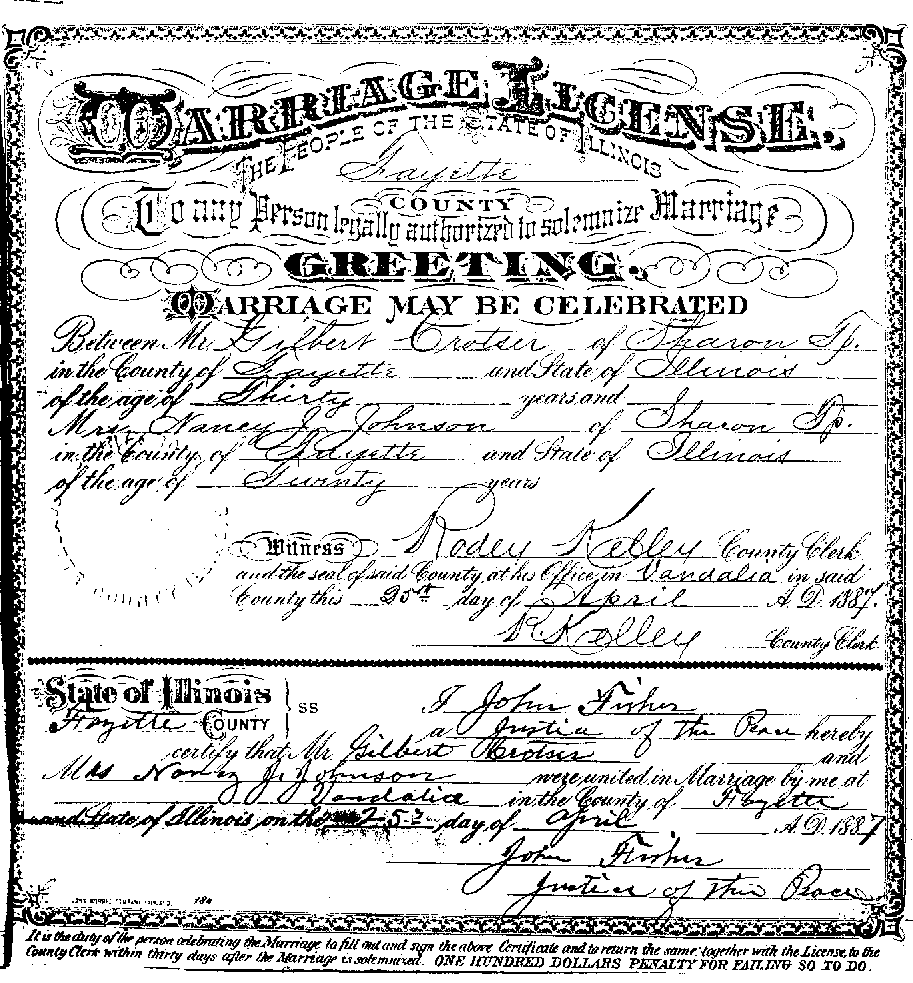 MARRIAGE LICENSE.
THE PEOPLE OF THE STATE OF ILLINOIS
Fayette
COUNTY
To any Person legally authorized to solemnize Marriage
GREETING.
MARRIAGE MAY BE CELEBRATED
Between Mr. Gilbert Crotser of Sharon Tp.
in the County of Fayette and State of Illinois
of the age of Thirty years and
Mrs. Nancy J. Johnson of Sharon Tp.
in the County of Fayette and State of Illinois
of the age of Twenty years
Witness Rodey Kelley County Clerk
and the seal of said County, at his Office, in Vandalia in said
County this 25th day of April A.D. 1887.
R Kelley County Clerk
State of Illinois
Fayette COUNTY } SS
I John Fisher
a Justice of the Peace hereby
certify that Mr. Gilbert Crotser and
Mrs Nancy J. Johnson were united in Marriage by me at
Vandalia in the County of Fayette
and State of Illinois, on the 25 day of April A.D. 1887
John Fisher
Justice of the Peace
184
It is the duty of the person celebrating the Marriage to fill out and sign the above Certificate and to return the same, together with the License, to the
County Clerk within thirty days after the Marriage is solemnized. ONE HUNDRED DOLLARS PENALTY FOR FAILING SO TO DO.